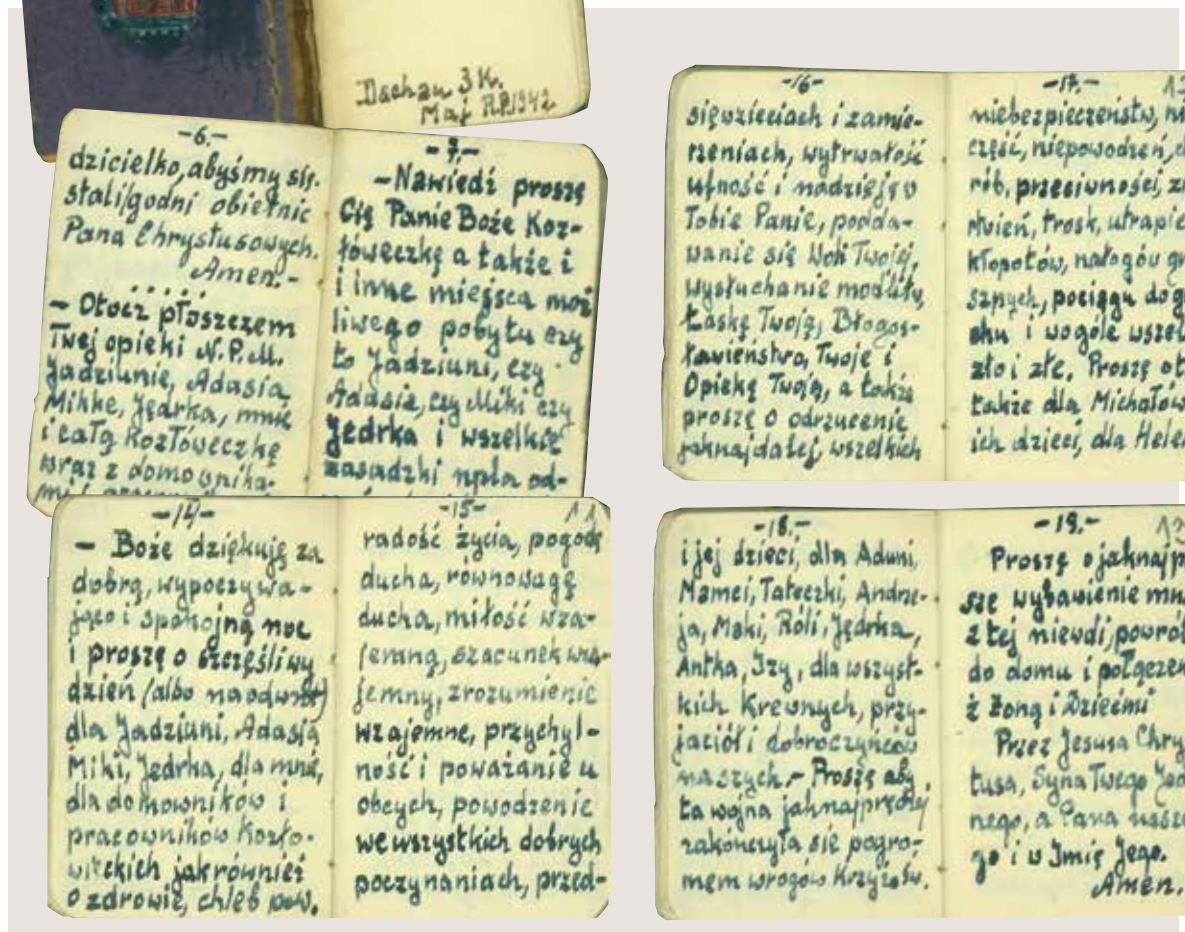 Dachau 3 K.
Maj R.P. 1942
-6.-
dzicielko, abyśmy się.
stali godni obietnic
Pana Chrystusowych.
Amen.-
.....
- Otocz płaszczem
Twej opieki N.P.M.
Jadziunię, Adasia,
Mikkę, Jędrka, mnie
i całą Kozłóweczkę
wraz z domownika-
mi i
-7.-
- Nawiedź proszę
Cię Panie Boże Koz-
łóweczkę a także i
i inne miejsca moż
liwego pobytu czy
to Jadziuni, czy
Adasia, czy Miki czy
Jędrka i wszelkie
zasadzki npla od-
-14-
- Boże dziękuję za
dobrą, wypoczywa-
jąco i spokojną noc
i proszę o szczęśliwy
dzień (albo na odwrót)
dla Jadziuni, Adasia
Miki, Jędrka, dla mnie,
dla domowników i
pracowników Kozło-
wieckich jak również
o zdrowie, chleb pow.
-15-
11
radość życia, pogodę
ducha, równowagę
ducha, miłość wza-
jemną, szacunek wza-
jemny, zrozumienie
wzajemne, przychyl-
ność i poważanie u
obcych, powodzenie
we wszystkich dobrych
poczynaniach, przed-
-16-
sięwzięciach i zamie-
rzeniach, wytrwałość
ufność i nadzieję w
Tobie Panie, podda-
wanie się Woli Twojej,
wysłuchanie modlitw,
Łaskę Twoją, Błogos-
ławieństwo, Twoje i
Opiekę Twoją, a także
proszę o odrzucenie
jaknajdalej, wszelkich
-17.-
niebezpieczeństw, ni
część, niepowodzeń, ch
rób, przeciwności, z
twień, trosk, utrapie
kłopotów, nałogów gr
sznych, pociągu do g
chu i wogole wszel
zło i złe. Proszę ot
także dla Michałów
ich dzieci, dla Helen
-18.-
i jej dzieci, dla Aduni,
Mamci, Tateczki, Andrze-
ja, Maki, Róli, Jędrka,
Antka, Izy, dla wszyst-
kich Krewnych, przy-
jaciół i dobroczyńców
naszych.- Proszę aby
ta wojna jaknajprędzej
zakończyła się pogro-
mem wrogów Krzyżów.
-19.-
Proszę o jaknajp
sze wybawienie mn
z tej niewoli, powrót
do domu i połączen
z Żoną i Dziećmi
Przez Jesusa Chry
tusa, Syna Twego Jed
nego, a Pana nasze
go i w Imię Jego.
Amen.